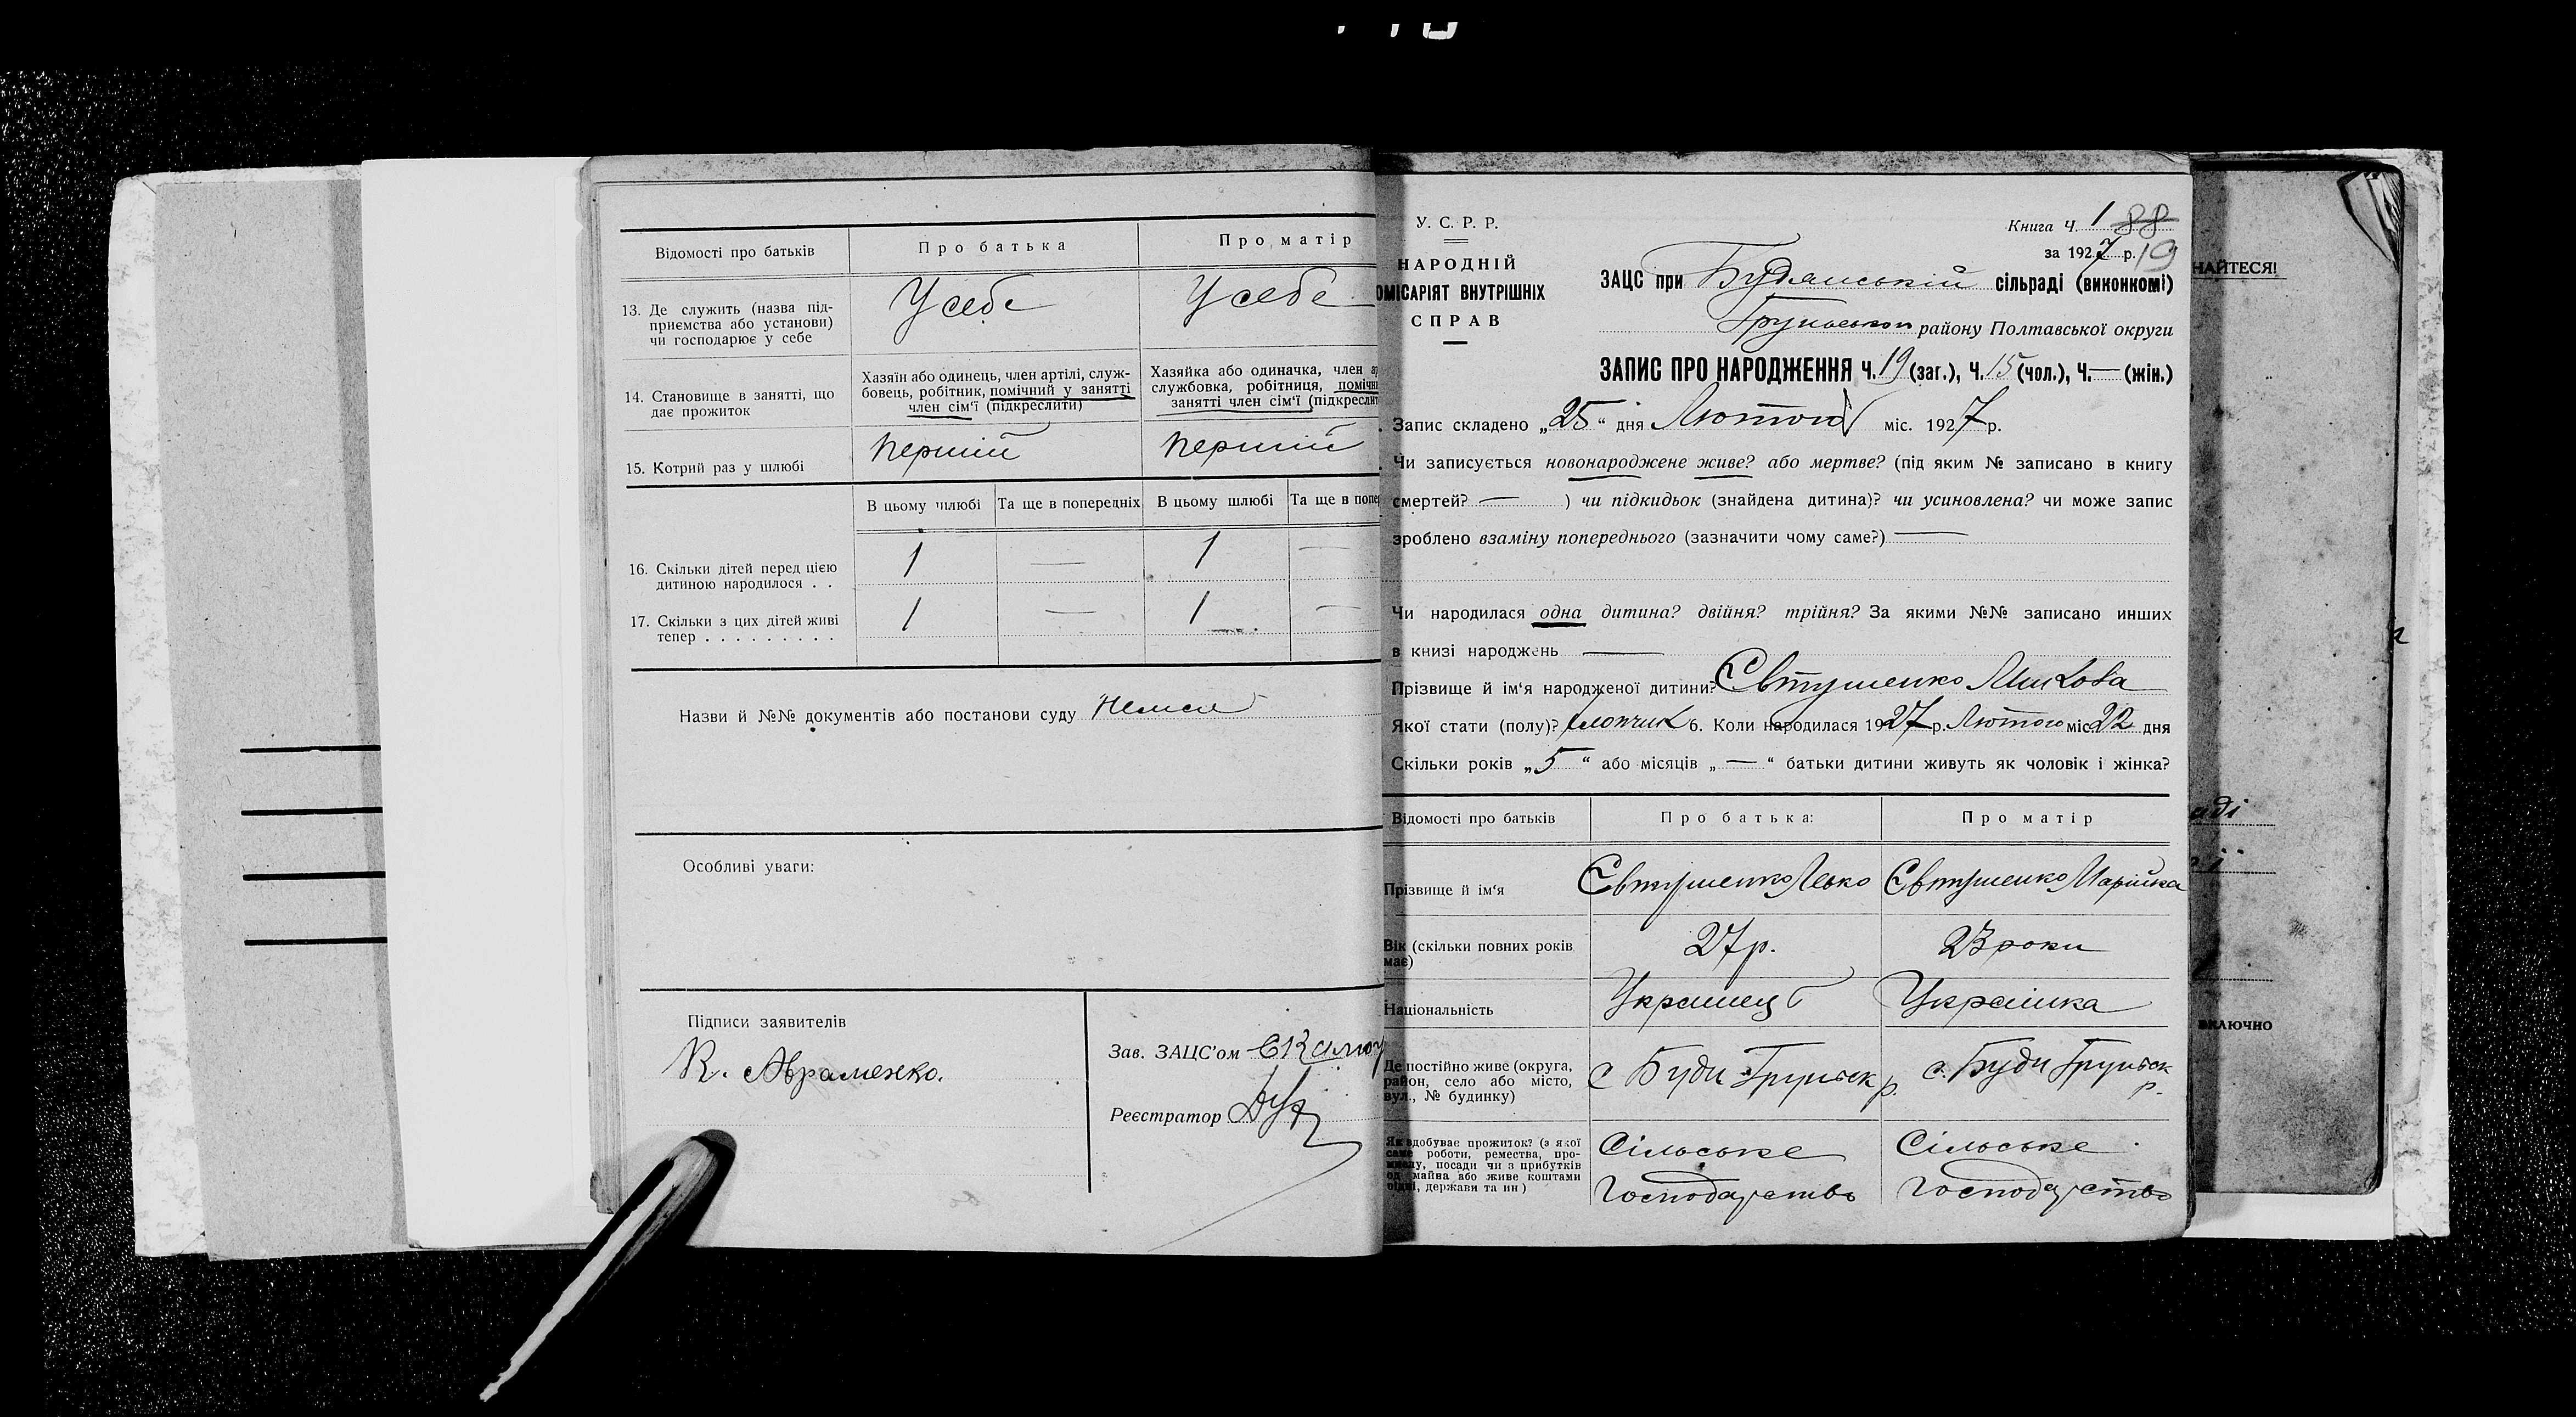 Відомості про батьків
Про батька
Про матір
13. Де служить (назва під-
приємства або установи)
чи господарює у себе
У себе
У себе
14. Становище в занятті, що
дає прожиток
Хазяїн або одинець, член артілі, служ-
бовець, робітник, помічний у занятті
член сім'ї (підкреслити)
Хазяйка або одиначка, член ар
службовка, робітниця, помічн
занятті член сім'ї (підкресли
15. Котрий раз у шлюбі
Перший
Перший
В цьому шлюбі
Та ще в попередніх
В цьому шлюбі
Та ще в попе
16. Скільки дітей перед цією
дитиною народилося . .
1 — 1 —
17. Скільки з цих дітей живі
тепер . . . . . . . . .
1 — 1 —
Назви й №№ документів або постанови суду Немає
Особливі уваги:
Підписи заявителів
К. Авраменко.
Зав. ЗАЦС'ом
Реєстратор
У. С. Р. Р.
НАРОДНІЙ
ОМІСАРІЯТ ВНУТРІШНІХ
СПРАВ
Книга Ч. 1 88
за 1927 р. 19
ЗАЦС при Будянській сільраді (виконкомі)
Грунському району Полтавської округи
ЗАПИС ПРО НАРОДЖЕННЯ Ч. 19 (заг.), Ч. 15 (чол.), Ч. — (жін.)
Запис складено „25“ дня Лютого міс. 1927 р.
Чи записується новонароджене живе? або мертве? (під яким № записано в книгу
смертей? — ) чи підкидьок (знайдена дитина)? чи усиновлена? чи може запис
зроблено взаміну попереднього (зазначити чому саме?) —
Чи народилася одна дитина? двійня? трійня? За якими №№ записано инших
в книзі народжень —
Прізвище й ім'я народженої дитини? Євтушенко Микола
Якої стати (полу)? хлопчик 6. Коли народилася 1927 р. Лютого міс. 22 дня
Скільки років „5“ або місяців „—“ батьки дитини живуть як чоловік і жінка?
Відомості про батьків
Про батька:
Про матір
Прізвище й ім'я
Євтушенко Лесько
Євтушенко Марійка
Вік (скільки повних років
має)
27р.
23 роки
Національність
Українец
Українка
Де постійно живе (округа,
район, село або місто,
вул., № будинку)
с Буди Грунськ р.
с. Буди Грунськ
р.
Як здобуває прожиток? (з якої
саме роботи, ремества, про-
мислу, посади чи з прибутків
од майва або живе коштами
рідні, держави та ин)
Сільське
Господарство
Сільське
Господарство
НАЙТЕСЯ!
аді
включно